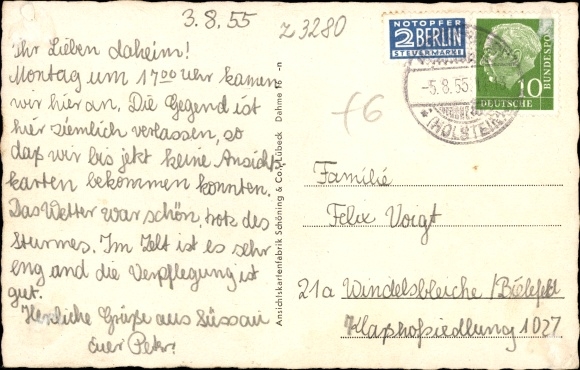 3.8.55
Z 3280
Ihr Lieben daheim!
Montag um 17 00 Uhr kamen
wir hier an. Die Gegend ist
hier ziemlich verlassen, so
daß wir bis jetzt keine Ansicht
karten bekommen konnten.
Das Wetter war schön, trotz des
Sturmes. Im Zelt ist es sehr
eng and die Verpflegung ist
gut.
Herzliche Grüße aus Süssau
Euer Peter.
Ansichtskartenfabrik Schöning & Co., Lübeck Dahme 16 -n
NOTOPFER
2 BERLIN
STEUERMARKE
-5.8.55.
(HOLSTEIN)
10
DEUTSCHE
BUNDESPOST
f6
Familie
Felix Voigt
21a Windelsbleiche/Bielefeld
Klaphofsiedlung 1027